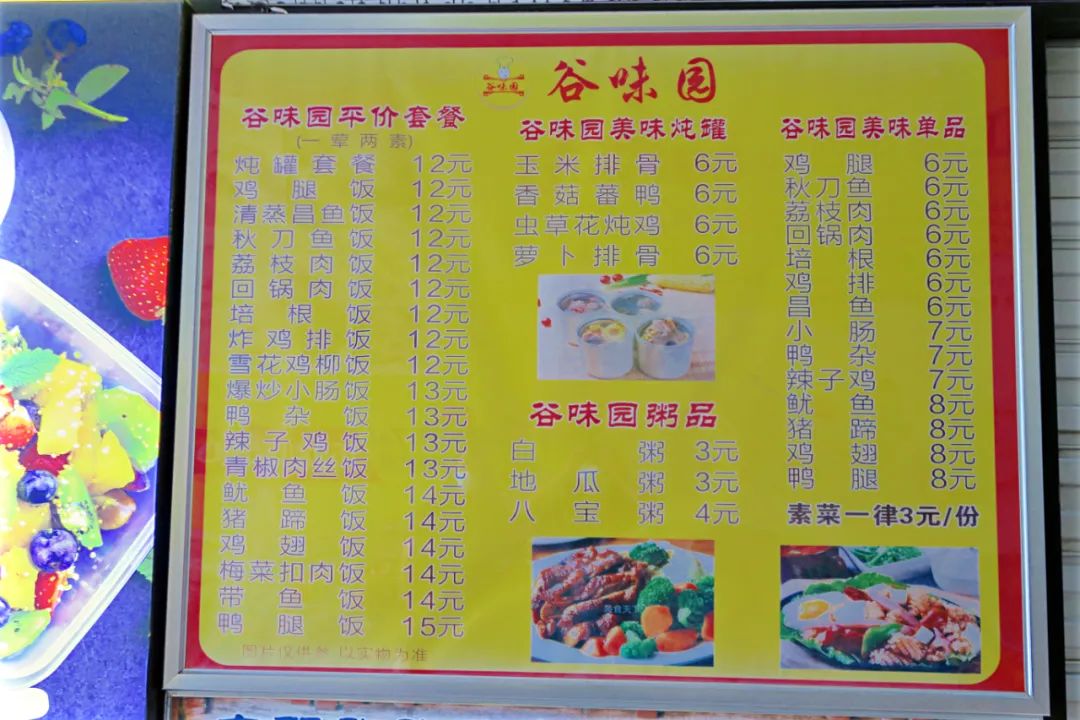 谷味园
谷味园
谷味园平价套餐
(一荤两素)
炖罐套餐 12元
鸡腿饭 12元
清蒸昌鱼饭 12元
秋刀鱼饭 12元
荔枝肉饭 12元
回锅肉饭 12元
培根饭 12元
炸鸡排饭 12元
雪花鸡柳饭 12元
爆炒小肠饭 13元
鸭杂饭 13元
辣子鸡饭 13元
青椒肉丝饭 13元
鱿鱼饭 14元
猪蹄饭 14元
鸡翅饭 14元
梅菜扣肉饭 14元
带鱼饭 14元
鸭腿饭 15元
图片仅供参 以实物为准
谷味园美味炖罐
玉米排骨 6元
香菇蕃鸭 6元
虫草花炖鸡 6元
萝卜排骨 6元
谷味园粥品
白粥 3元
地瓜粥 3元
八宝粥 4元
谷味园美味单品
鸡腿 6元
秋刀鱼 6元
荔枝肉 6元
回锅肉 6元
培根 6元
鸡排 6元
昌鱼 6元
小肠 7元
鸭杂 7元
辣子鸡 7元
鱿鱼 8元
猪蹄 8元
鸡翅 8元
鸭腿 8元
素菜一律3元/份